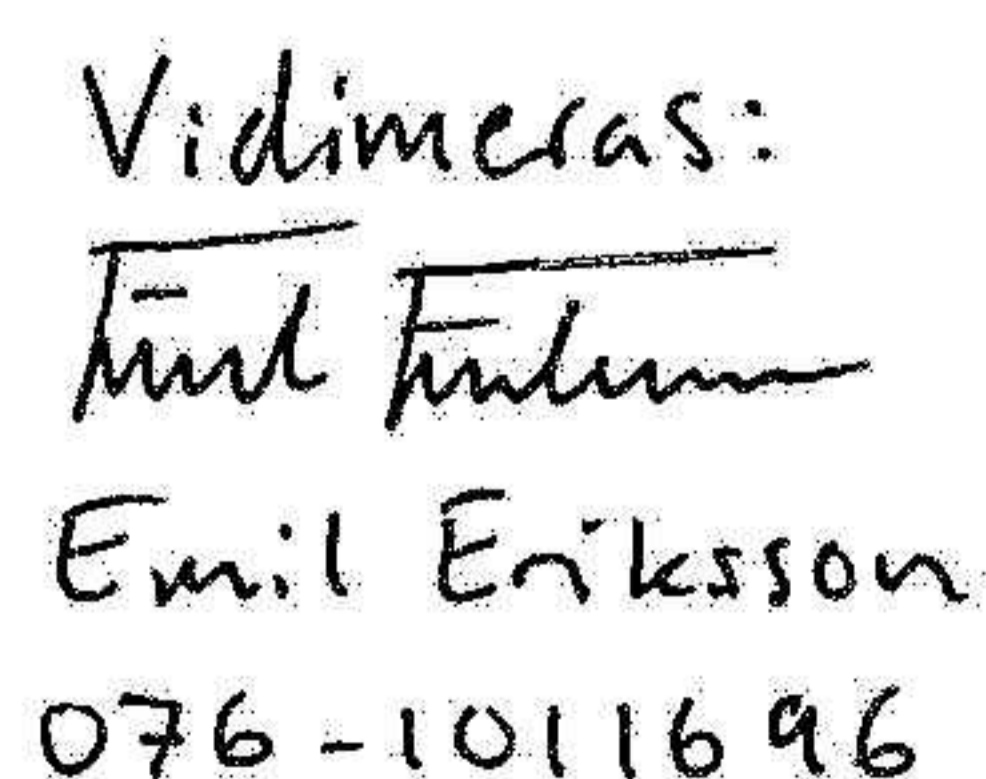 Vidimeras:
Emil Eriksson
Emil Eriksson
076-1011696